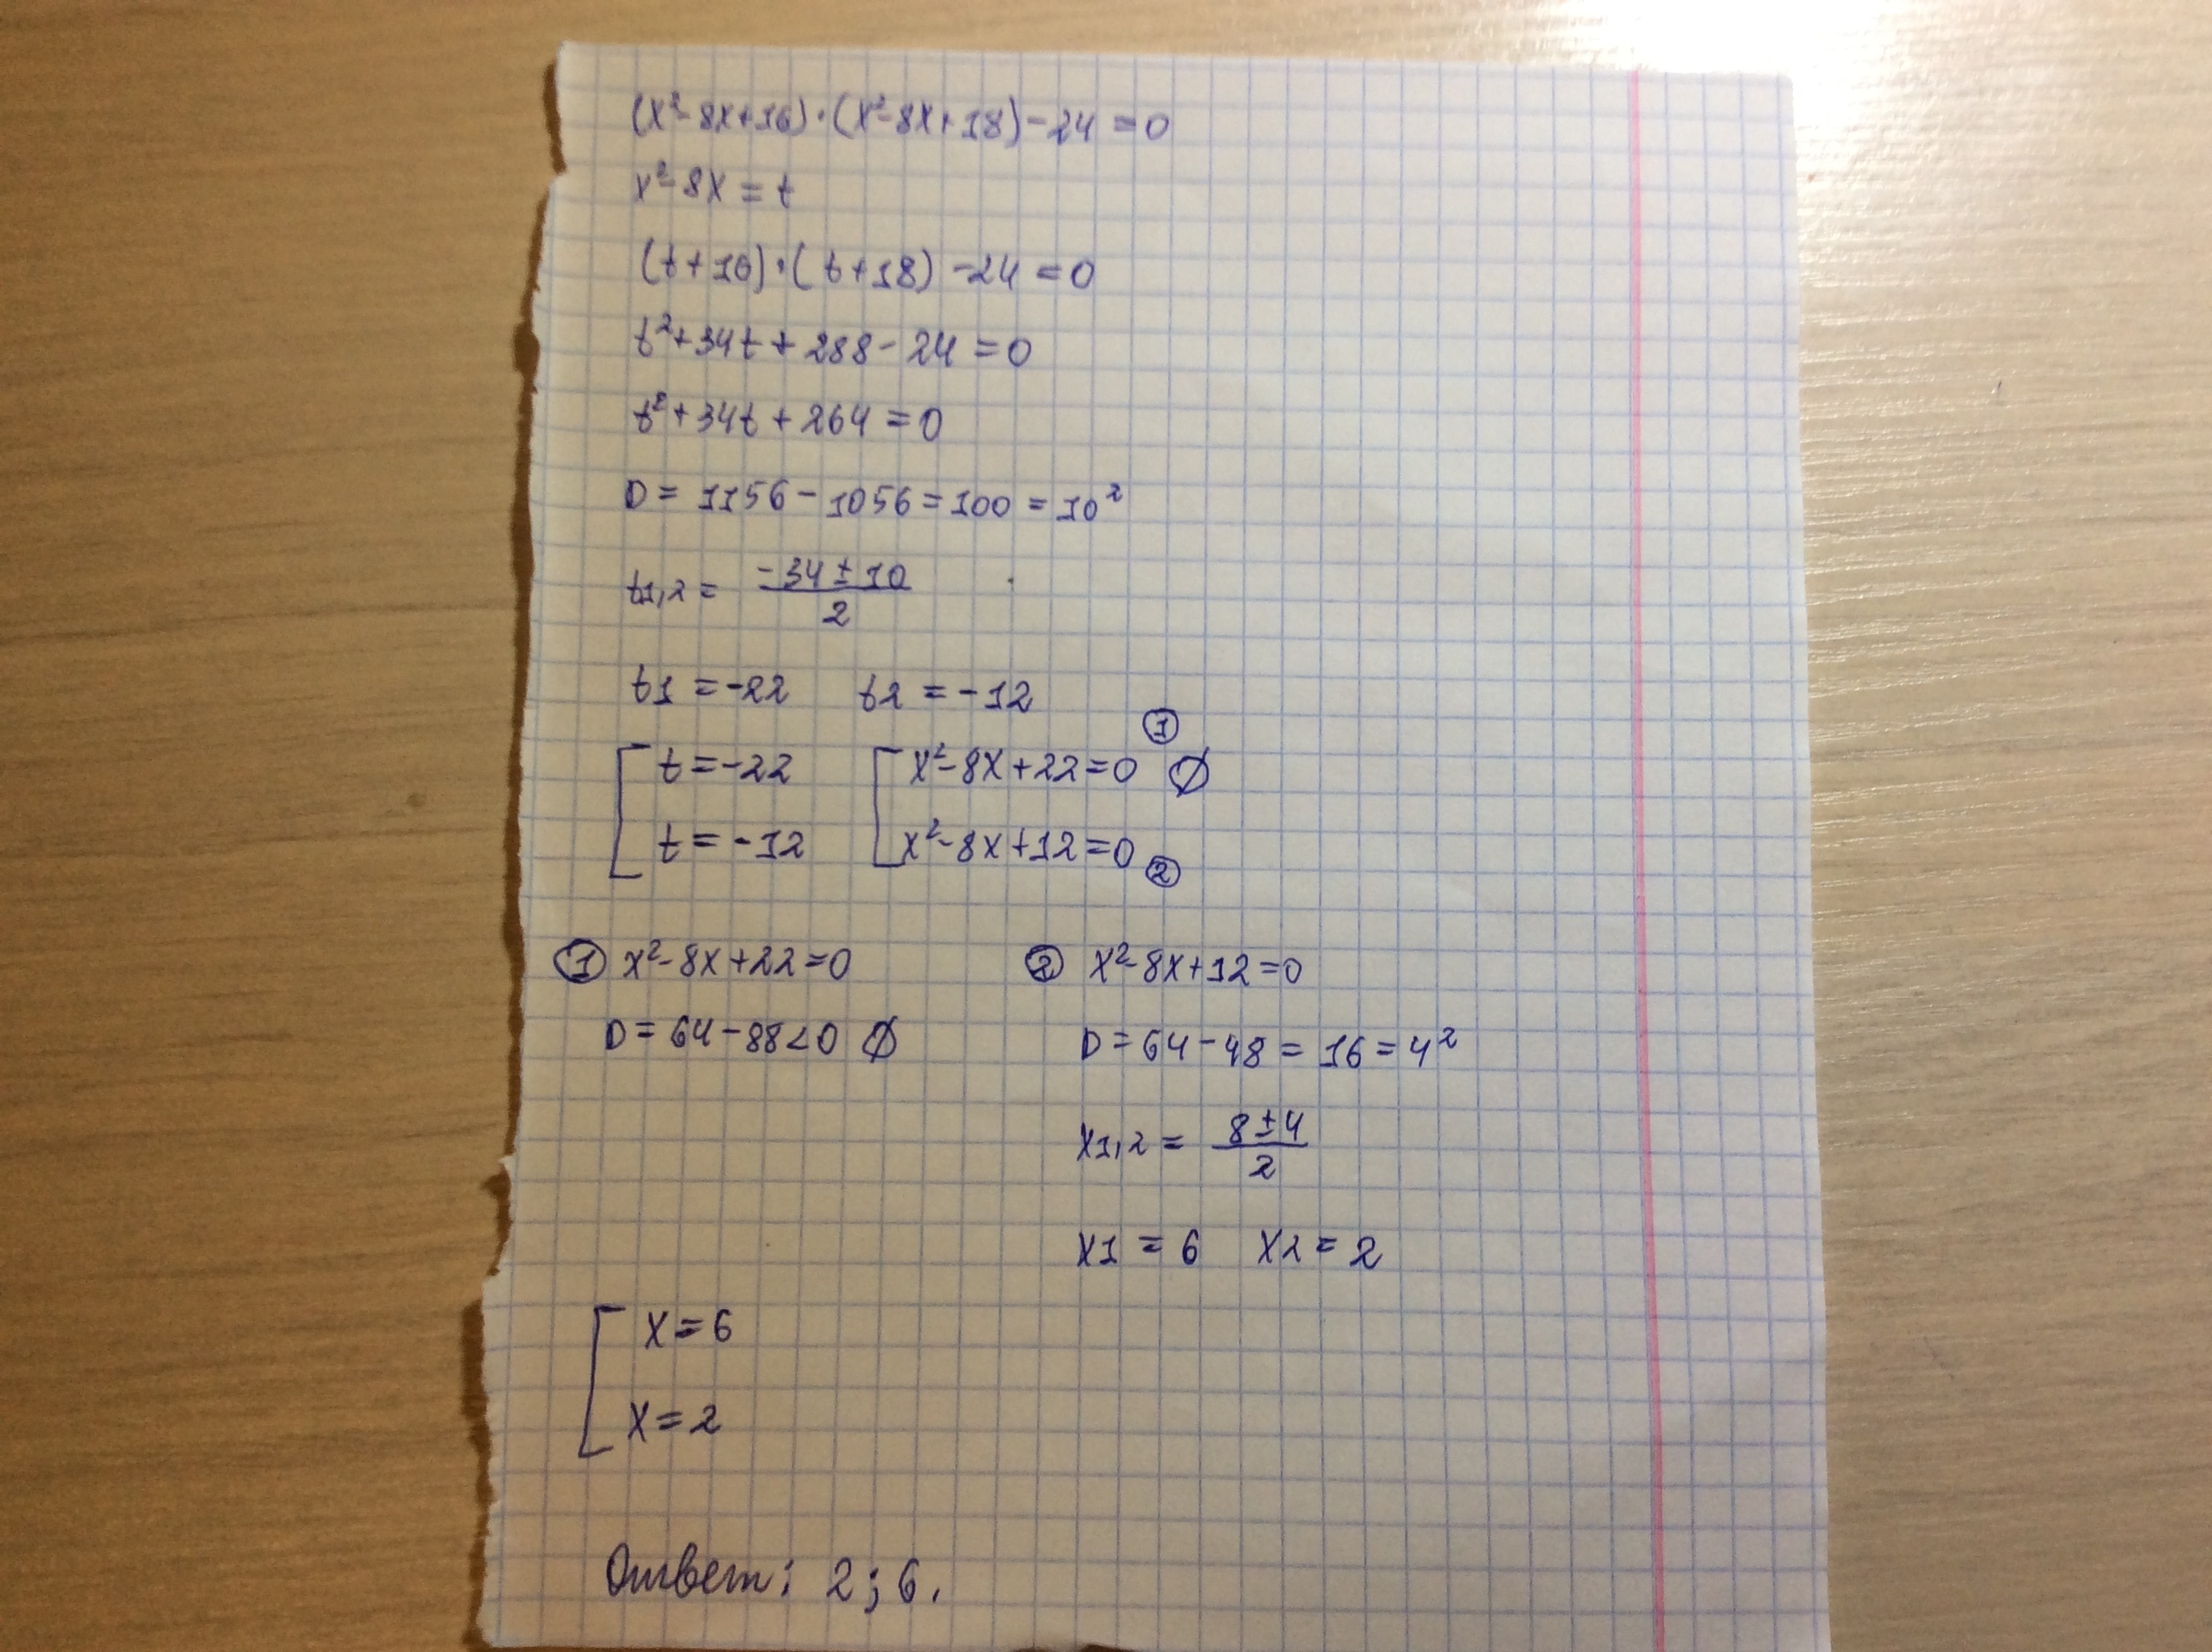 (x²-8x+16)·(x²-8x+18)-24=0
x²-8x=t
(t+16)·(t+18)-24=0
t²+34t+288-24=0
t²+34t+264=0
D=1156-1056=100=10²
t1,2= (-34±10)/2
t1=-22 t2=-12
[ t=-22 [ x²-8x+22=0 ① ∅
t=-12 x²-8x+12=0 ②
① x²-8x+22=0 ② x²-8x+12=0
D=64-88<0 ∅ D=64-48=16=4²
x1,2= (8±4)/2
x1=6 x2=2
[ x=6
x=2
Ответ: 2; 6.